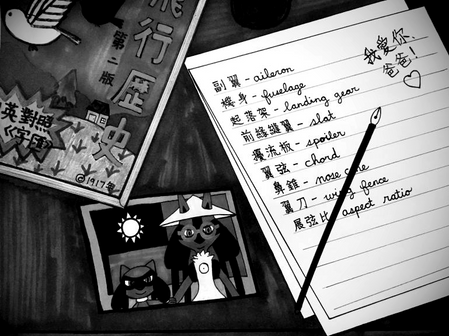 行歷史
第二版
英對照
《字匯》
©1917年
我爱你,
爸爸!
副翼 - aileron
機身 - fuelage
起落架 - landing gear
前緣縫翼 - slot
擾流板 - spoiler
翼弦 - chord
鼻錐 - nose cone
翼刀 - wing fence
展弦比 - aspect ratio